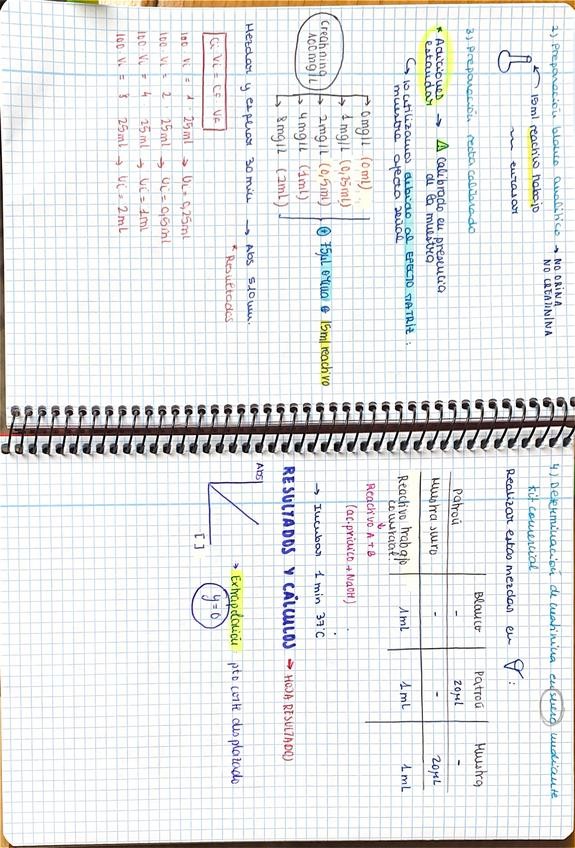 2) Preparación blanco analítico → NO ORINA
NO CREATININA
15ml reactivo trabajo
~ enrasar
3) Preparación recta calibrado
* Adiciones estandar → △ calibrado en presencia
de la muestra
↳ lo utilizamos debido al EFECTO MATRIZ:
muestra afecta señal
Creatinina
100mg/L
0 mg/L (0 ml)
1 mg/L (0,25ml)
2 mg/L (0,5ml)
4 mg/L (1ml)
8 mg/L (2ml)
⊕ 75µL orina ⊕ 15ml reactivo
Mezclar y esperar 30 min → Abs 510 nm.
* Resultados
Ci Vi = Cf Vf
100 Vi = 1 · 25ml → Vi = 0,25ml
100 Vi = 2 25ml → Vi = 0,5ml
100 Vi = 4 25ml → Vi = 1ml
100 Vi = 8 25ml → Vi = 2ml
4) Determinación de creatinina en suero mediante
kit comercial
Realizar estas mezclas en :
Blanco Patrón Muestra
Patrón - 20µL -
Muestra suero - - 20µL
Reactivo trabajo 1mL 1mL 1mL
Reactivo A+B
(ac. pícrico + NaOH)
→ Incubar 1 min 37°C
RESULTADOS Y CÁLCULOS → HOJA RESULTADOS
Abs
[ ]
→ Extrapolación: pto corte desplazado
y=0